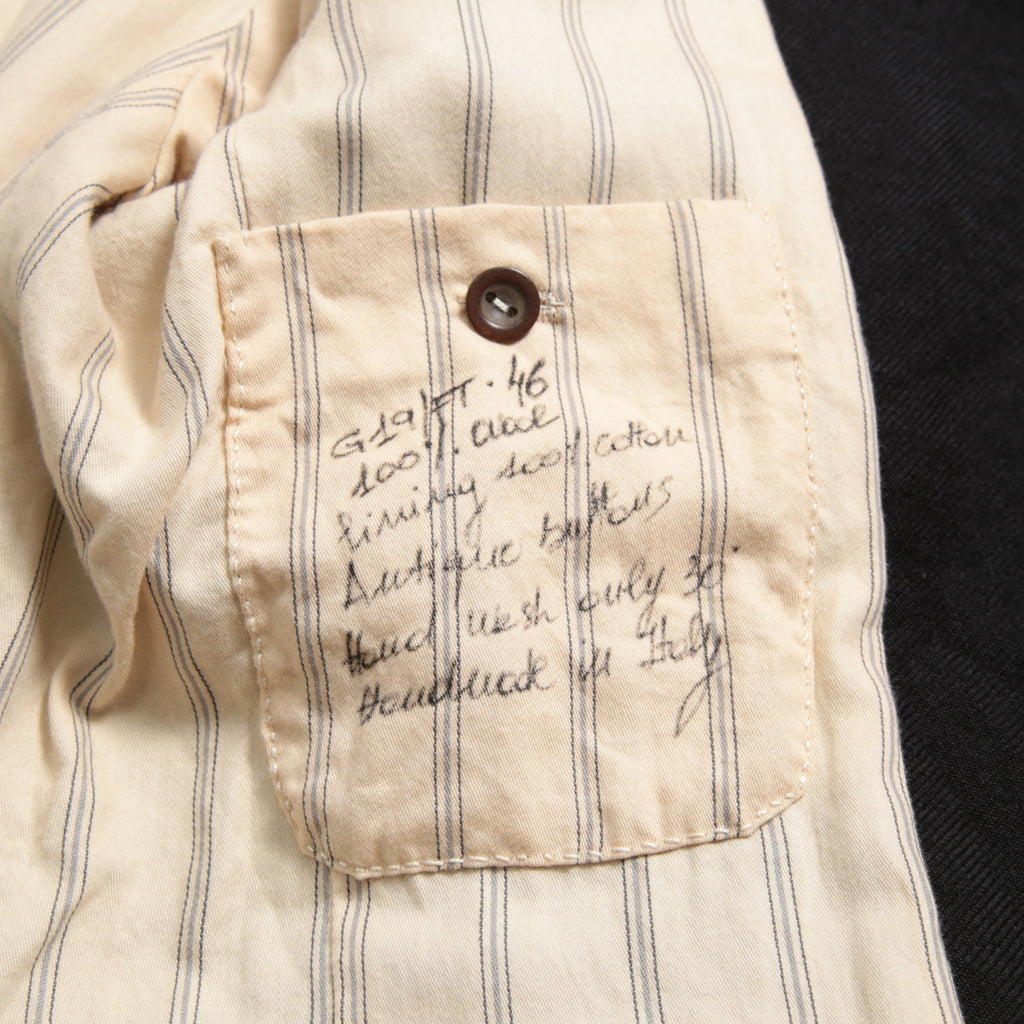 G19 T. 46
100% wool
lining 100% cotton
Antique buttons
Hand wash only 30°
Handmade in Italy